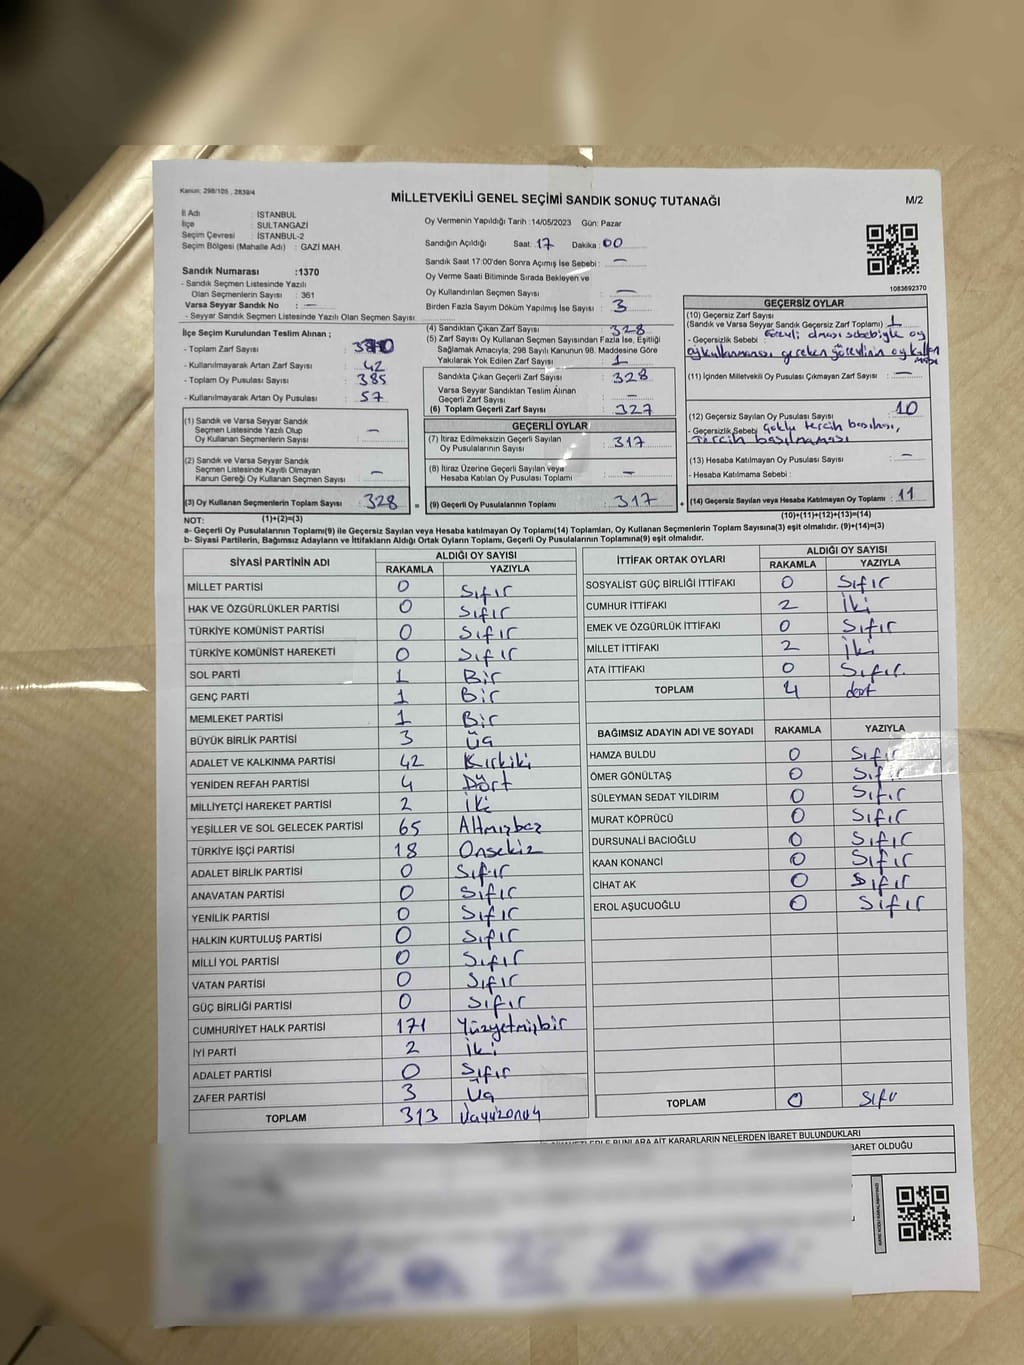 Kanun: 298/105 , 2839/4
MİLLETVEKİLİ GENEL SEÇİMİ SANDIK SONUÇ TUTANAĞI
M/2
İl Adı : İSTANBUL
İlçe : SULTANGAZİ
Seçim Çevresi : İSTANBUL-2
Seçim Bölgesi (Mahalle Adı) : GAZİ MAH.
Sandık Numarası :1370
- Sandık Seçmen Listesinde Yazılı
Olan Seçmenlerin Sayısı : 361
Varsa Seyyar Sandık No : —
- Seyyar Sandık Seçmen Listesinde Yazılı Olan Seçmen Sayısı:
Oy Vermenin Yapıldığı Tarih :14/05/2023 Gün: Pazar
Sandığın Açıldığı Saat: 17 Dakika : 00
Sandık Saat 17:00'den Sonra Açımış İse Sebebi : —
Oy Verme Saati Bitiminde Sırada Bekleyen ve
Oy Kullandırılan Seçmen Sayısı : —
Birden Fazla Sayım Döküm Yapılmış İse Sayısı : 3
1083692370
İlçe Seçim Kurulundan Teslim Alınan ;
- Toplam Zarf Sayısı :
- Kullanılmayarak Artan Zarf Sayısı : 42
- Toplam Oy Pusulası Sayısı : 385
- Kullanılmayarak Artan Oy Pusulası : 57
(1) Sandık ve Varsa Seyyar Sandık
Seçmen Listesinde Yazılı Olup
Oy Kullanan Seçmenlerin Sayısı : —
(2) Sandık ve Varsa Seyyar Sandık
Seçmen Listesinde Kayıtlı Olmayan
Kanun Gereği Oy Kullanan Seçmen Sayısı : —
(3) Oy Kullanan Seçmenlerin Toplam Sayısı : 328
(1)+(2)=(3)
(4) Sandıktan Çıkan Zarf Sayısı : 328
(5) Zarf Sayısı Oy Kullanan Seçmen Sayısından Fazla İse, Eşitliği
Sağlamak Amacıyla, 298 Sayılı Kanunun 98. Maddesine Göre
Yakılarak Yok Edilen Zarf Sayısı : 1
Sandıkta Çıkan Geçerli Zarf Sayısı : 328
Varsa Seyyar Sandıktan Teslim Alınan
Geçerli Zarf Sayısı : —
(6) Toplam Geçerli Zarf Sayısı : 327
GEÇERLİ OYLAR
(7) İtiraz Edilmeksizin Geçerli Sayılan
Oy Pusulalarının Sayısı : 317
(8) İtiraz Üzerine Geçerli Sayılan veya
Hesaba Katılan Oy Pusulası Toplamı : —
= (9) Geçerli Oy Pusulalarının Toplamı : 317 +
GEÇERSİZ OYLAR
(10) Geçersiz Zarf Sayısı
(Sandık ve Varsa Seyyar Sandık Geçersiz Zarf Toplamı) : 1
- Geçersizlik Sebebi : olması sebebiyle oy
oy kullanmaması gereken görevlinin oy kullan
ması
(11) İçinden Milletvekili Oy Pusulası Çıkmayan Zarf Sayısı : —
(12) Geçersiz Sayılan Oy Pusulası Sayısı : 10
- Geçersizlik Sebebi : Çoklu tercih basılması,
Tercih basılmaması
(13) Hesaba Katılmayan Oy Pusulası Sayısı : —
- Hesaba Katılmama Sebebi :
(14) Geçersiz Sayılan veya Hesaba Katılmayan Oy Pusulası Toplamı : 11
(10)+(11)+(12)+(13)=(14)
NOT:
a- Geçerli Oy Pusulalarının Toplamı(9) ile Geçersiz Sayılan veya Hesaba katılmayan Oy Toplamı(14) Toplamları, Oy Kullanan Seçmenlerin Toplam Sayısına(3) eşit olmalıdır. (9)+(14)=(3)
b- Siyasi Partilerin, Bağımsız Adayların ve İttifakların Aldığı Ortak Oyların Toplamı, Geçerli Oy Pusulalarının Toplamına(9) eşit olmalıdır.
SİYASİ PARTİNİN ADI ALDIĞI OY SAYISI
RAKAMLA YAZIYLA
MİLLET PARTİSİ 0 Sıfır
HAK VE ÖZGÜRLÜKLER PARTİSİ 0 Sıfır
TÜRKİYE KOMÜNİST PARTİSİ 0 Sıfır
TÜRKİYE KOMÜNİST HAREKETİ 0 Sıfır
SOL PARTİ 1 Bir
GENÇ PARTİ 1 Bir
MEMLEKET PARTİSİ 1 Bir
BÜYÜK BİRLİK PARTİSİ 3 Üç
ADALET VE KALKINMA PARTİSİ 42 Kırkiki
YENİDEN REFAH PARTİSİ 4 Dört
MİLLİYETÇİ HAREKET PARTİSİ 2 İki
YEŞİLLER VE SOL GELECEK PARTİSİ 65 Altmışbeş
TÜRKİYE İŞÇİ PARTİSİ 18 Onsekiz
ADALET BİRLİK PARTİSİ 0 Sıfır
ANAVATAN PARTİSİ 0 Sıfır
YENİLİK PARTİSİ 0 Sıfır
HALKIN KURTULUŞ PARTİSİ 0 Sıfır
MİLLİ YOL PARTİSİ 0 Sıfır
VATAN PARTİSİ 0 Sıfır
GÜÇ BİRLİĞİ PARTİSİ 0 Sıfır
CUMHURİYET HALK PARTİSİ 171 Yüzyetmişbir
İYİ PARTİ 2 İki
ADALET PARTİSİ 0 Sıfır
ZAFER PARTİSİ 3 Üç
TOPLAM 313 Üçyüzonüç
İTTİFAK ORTAK OYLARI ALDIĞI OY SAYISI
RAKAMLA YAZIYLA
SOSYALİST GÜÇ BİRLİĞİ İTTİFAKI 0 Sıfır
CUMHUR İTTİFAKI 2 İki
EMEK VE ÖZGÜRLÜK İTTİFAKI 0 Sıfır
MİLLET İTTİFAKI 2 İki
ATA İTTİFAKI 0 Sıfır
TOPLAM 4 dört
BAĞIMSIZ ADAYIN ADI VE SOYADI RAKAMLA YAZIYLA
HAMZA BULDU 0 Sıfır
ÖMER GÖNÜLTAŞ 0 Sıfır
SÜLEYMAN SEDAT YILDIRIM 0 Sıfır
MURAT KÖPRÜCÜ 0 Sıfır
DURSUNALİ BACIOĞLU 0 Sıfır
KAAN KONANCİ 0 Sıfır
CİHAT AK 0 Sıfır
EROL AŞUCUOĞLU 0 Sıfır
TOPLAM 0 Sıfır
BUNLARA AİT KARARLARIN NELERDEN İBARET BULUNDUKLARI
BARET OLDUĞU